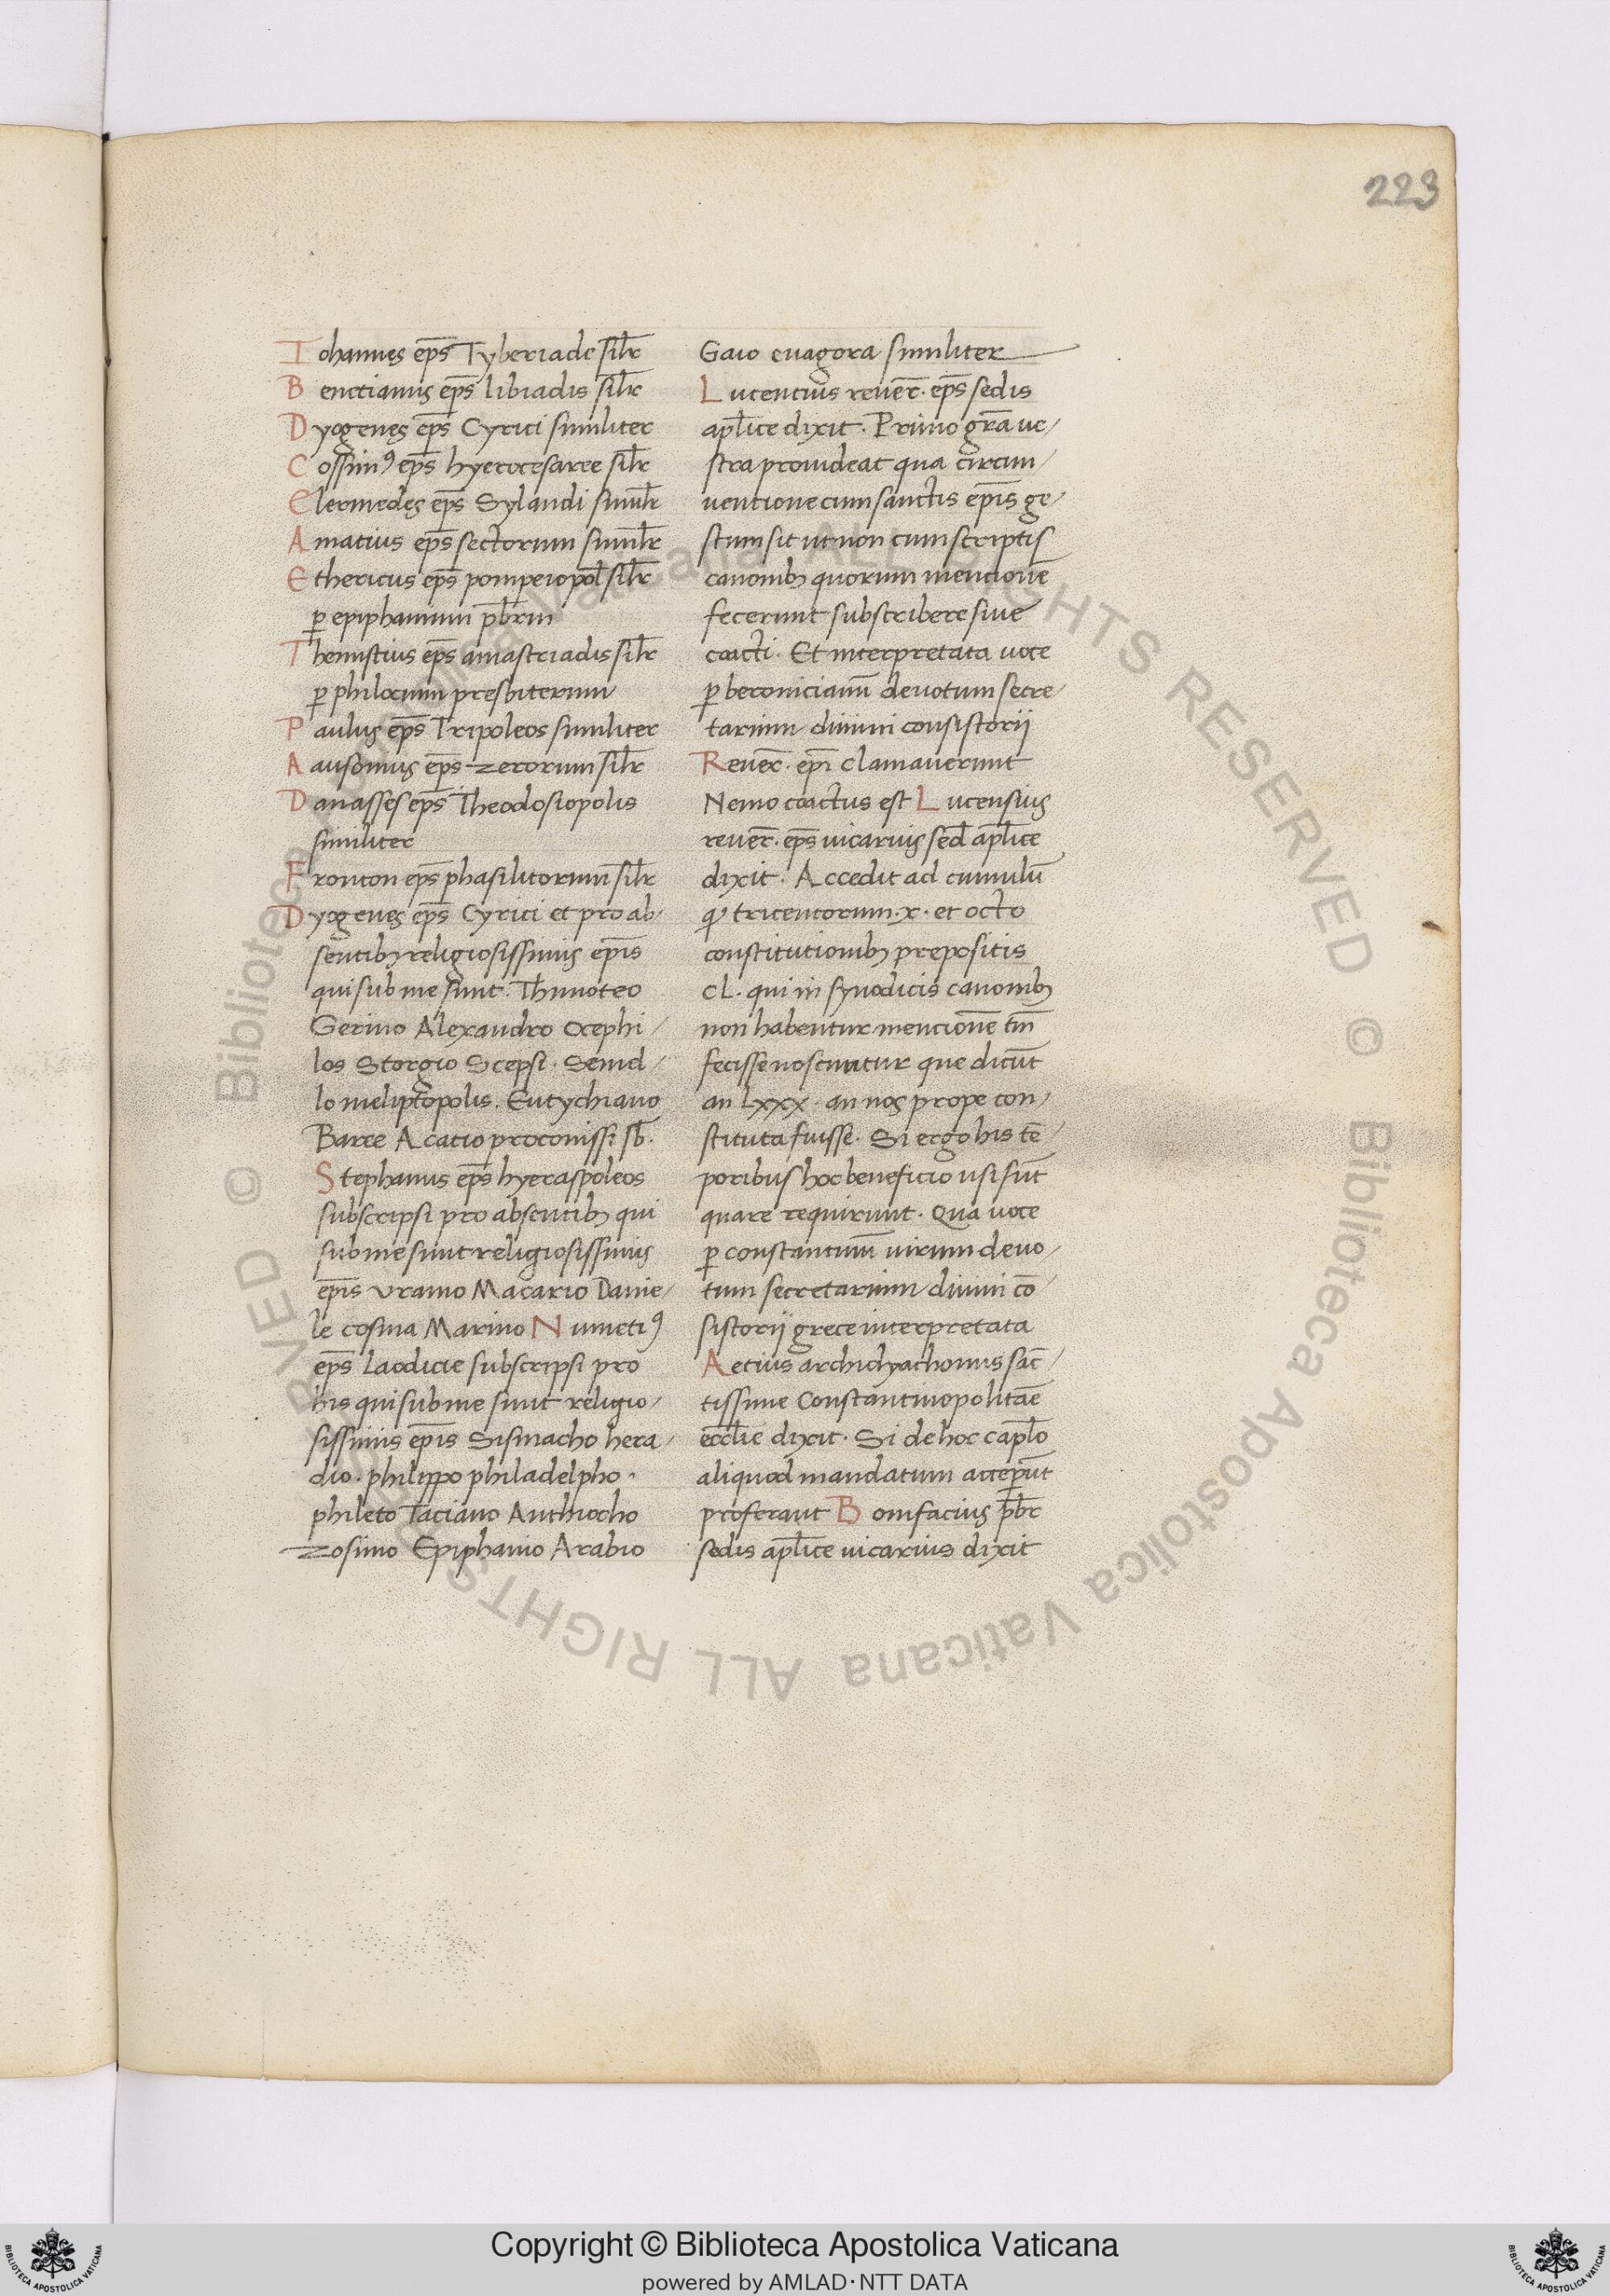 223
Iohannes ep̄s Tyberiade sil̄r
Benctianus ep̄s libiadis sil̄r
Dyogenes ep̄s Cyrici similiter
Cossinꝰ ep̄s hyerocesaree sil̄r
Elermedes ep̄s Sylandi simil̄r
Amatius ep̄s sectorum simil̄r
Ethericus ep̄s pompeiopol̄ sil̄r
ꝑ epiphanium p̄brm
Themistius ep̄s amastriadis sil̄r
ꝑ philocinum presbiterum
Paulus ep̄s Tripoleos similiter
Aausonius ep̄s zerorum sil̄r
Danasses ep̄s Theodosiopolis
similiter
Fronton ep̄s phasilitorum sil̄r
Dyogenes ep̄s Cyrici et pro ab/
sentibꝫ religiosissimis ep̄is
qui sub me sunt. Thimoteo
Gerino Alexandro Ocephi/
los Storgio Scepsi. Semel/
lo meliptopolis. Eutychiano
Barce Acatio proconissi sb̄.
Stephanus ep̄s hyeraspoleos
subscripsi pro absentibꝫ qui
sub me sunt religiosissimis
ep̄is uranio Macario Danie/
le cosma Marino Numetiꝰ
ep̄s laodicie subscripsi pro
his qui sub me sunt religio/
sissimis ep̄is Sismacho hera/
dio. philippo philadelpho.
phileto Taciano Anthiocho
zosimo Epiphanio Arabio
Gaio euagora similiter
Lucentius reuer̄. ep̄s sedis
ap̄lice dixit. Primo gr̄a ue/
stra prouideat qua circum/
uentione cum sanctis ep̄is ge/
stum sit ut non cum scriptis
canonibꝫ quorum mentionē
fecerunt subscribere siue
coacti. Et interpretata uoce
ꝑ beronicianū deuotum secre/
tarium diuini consistorii
Reuer̄. ep̄i clamauerunt
Nemo coactus est Lucensius
reuer̄. ep̄s uicarius sed̄ ap̄lice
dixit. Accedit ad cumulū
ꝙ tricentorum. x. et octo
constitutionibꝫ prepositis
CL. qui in synodicis canonibꝫ
non habentur mencionē tm̄
fecisse noscuntur que dicūt
an Lxxx. annos prope con/
stituta fuisse. Si ergo his tē
poribus hoc beneficio usi sūt
quare requirunt. Qua uoce
ꝑ constantinū uirum deuo/
tum secretarium diuini cō/
sistorii grece interpretata
Aetius archidyachonus sāc/
tissime Constantinopolitāe
eccl̄ie dixit. Si de hoc capl̄o
aliquod mandatum acceperūt
proferant Bonifacius p̄br
sedis ap̄lice uicarius dixit
Copyright © Biblioteca Apostolica Vaticana
powered by AMLAD·NTT DATA